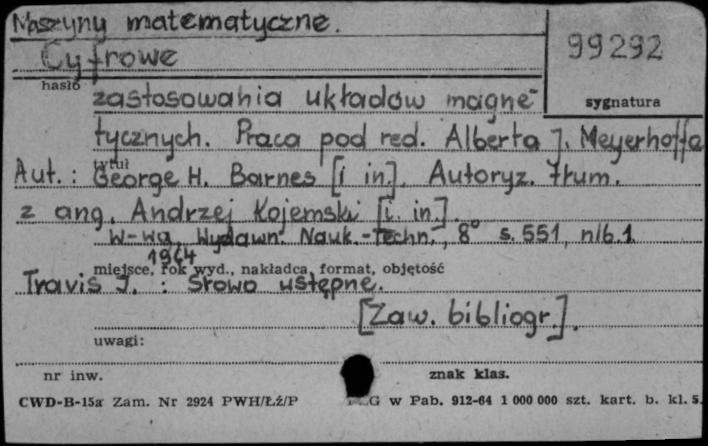 Maszyny matematyczne.
Cyfrowe
99292
hasło
sygnatura
zastosowania układów magne-
tycznych. Praca pod red. Alberta J. Meyerhoffa
tytuł
Aut.: George H. Barnes [i in.]. Autoryz. tłum.
z ang. Andrzej Kojemski [i. in.].
W-wa, Wydawn. Nauk.-Techn., 8° s. 551, nlb. 1
1964
miejsce, rok wyd., nakładca, format, objętość
Travis J. : Słowo wstępne.
[Zaw. bibliogr.].
uwagi:
nr inw.
znak klas.
CWD-B-15a Zam. Nr 2924 PWH/Łź/P
G w Pab. 912-64 1 000 000 szt. kart. b. kl. 5.